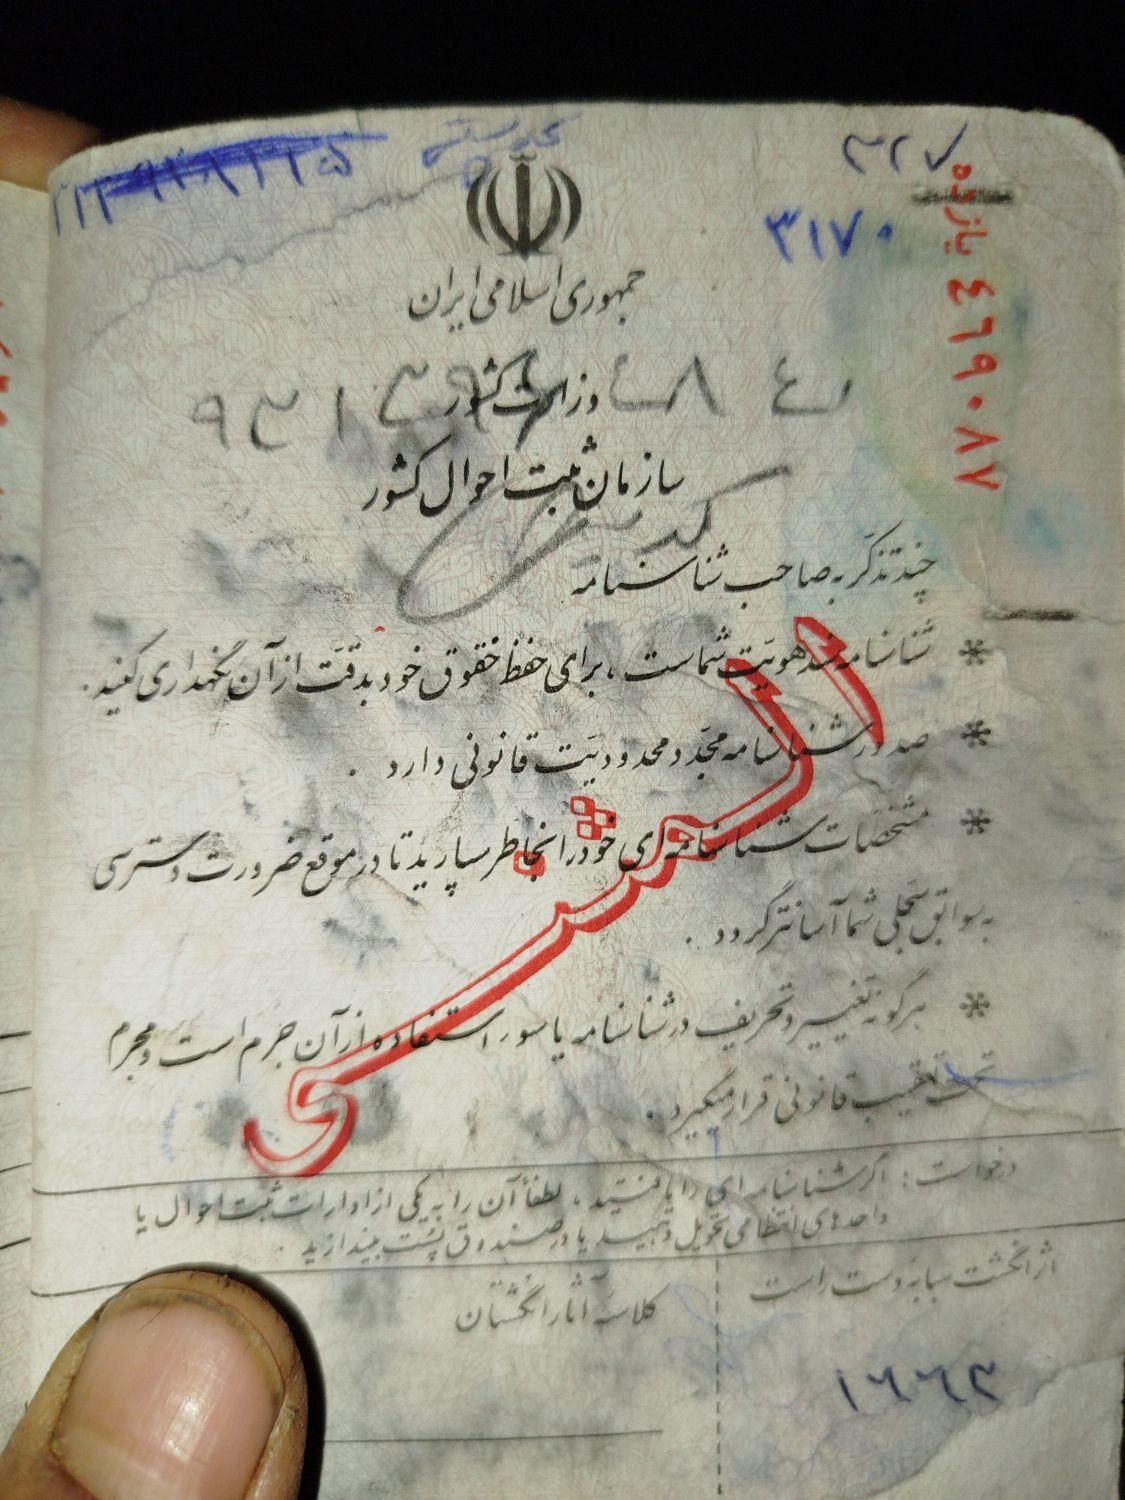 ۳۱۷۰
یازده ٤٦٩٠٨٧
جمهوری اسلامی ایران
وزارت کشور
سازمان ثبت احوال کشور
چند تذکر به صاحب شناسنامه
* شناسنامه سند هویّت شماست ، برای حفظ حقوق خود بدقّت از آن نگهداری کنید .
* صدور شناسنامه مجدّد محدودیّت قانونی دارد .
* مشخصات شناسنامه‌ای خود را بخاطر بسپارید تا در موقع ضرورت دسترسی
به سوابق سجلی شما آسانتر گردد .
* هرگونه تغییر و تحریف در شناسنامه یا سوء استفاده از آن جرم است و مجرم
تحت تعقیب قانونی قرار میگیرد .
المثنی
درخواست : اگر شناسنامه‌ای را یافتید ، لطفاً آن را به یکی از ادارات ثبت احوال یا
واحدهای انتظامی تحویل دهید یا در صندوق پست بیندازید .
اثر انگشت سبابه دست راست
کلاسه آثار انگشتان